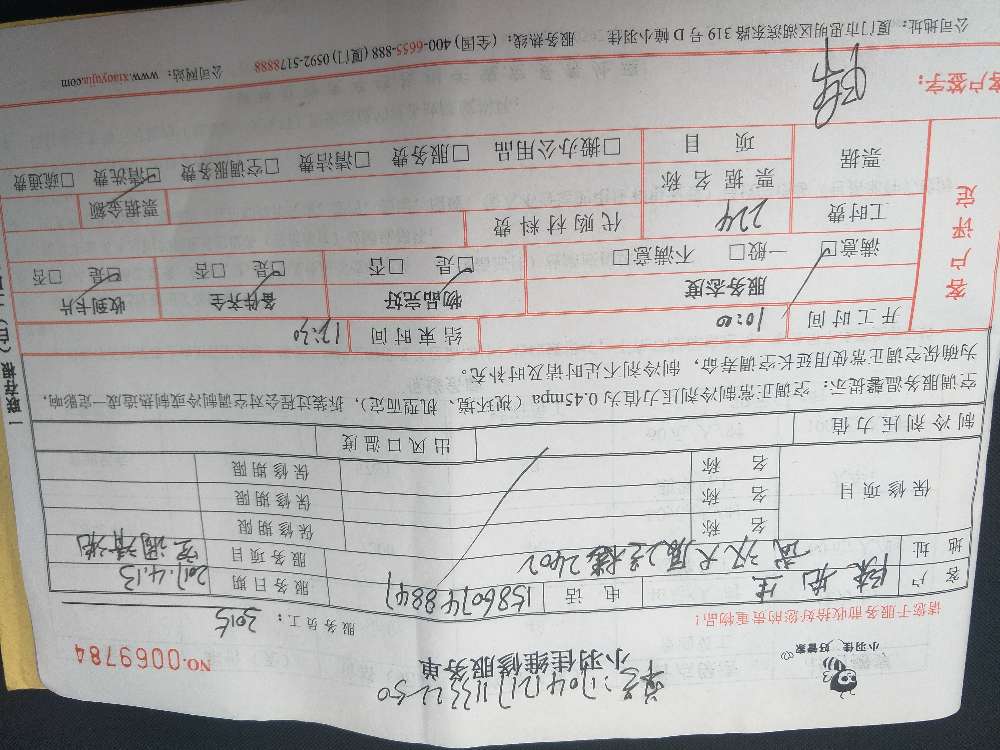 单号:1704121713522250
小羽佳 好管家
小羽佳维修服务单
NO.0069784
请您于服务前收拾您的贵重物品!
服务员工: 3015
客户
电话 15860748847
服务日期 2017.4.13
地址 2402
服务项目 空调清洗
保修项目
名称 保修期限
名称 保修期限
名称 保修期限
制冷剂压力值 出风口温度
空调服务温馨提示: 空调正常制冷剂压力值为 0.45mpa (视环境、机型而定), 拆装过程会对空调制冷或制热造成一定影响,
为确保空调正常使用延长空调寿命, 制冷剂不足时请及时补充。
客户评定
开工时间 10:00 结束时间 12:30
服务态度 物品完好 备件齐全 收到卡片
满意☑ 一般□ 不满意□ ☑是 □否 ☑是 □否 ☑是 □否
工时费 224 代购材料费
票据 票据名称 票据金额
项目 □搬办公用品 □服务费 □清洁费 □空调服务费 ☑清洗费 □疏通费
客户签字:
公司地址: 厦门市思明区湖滨东路 319 号 D 幢小羽佳 服务热线: (全国) 400-6655-888 (厦门) 0592-5178888 公司网站: www.xiaoyujia.com
一联存根(白)